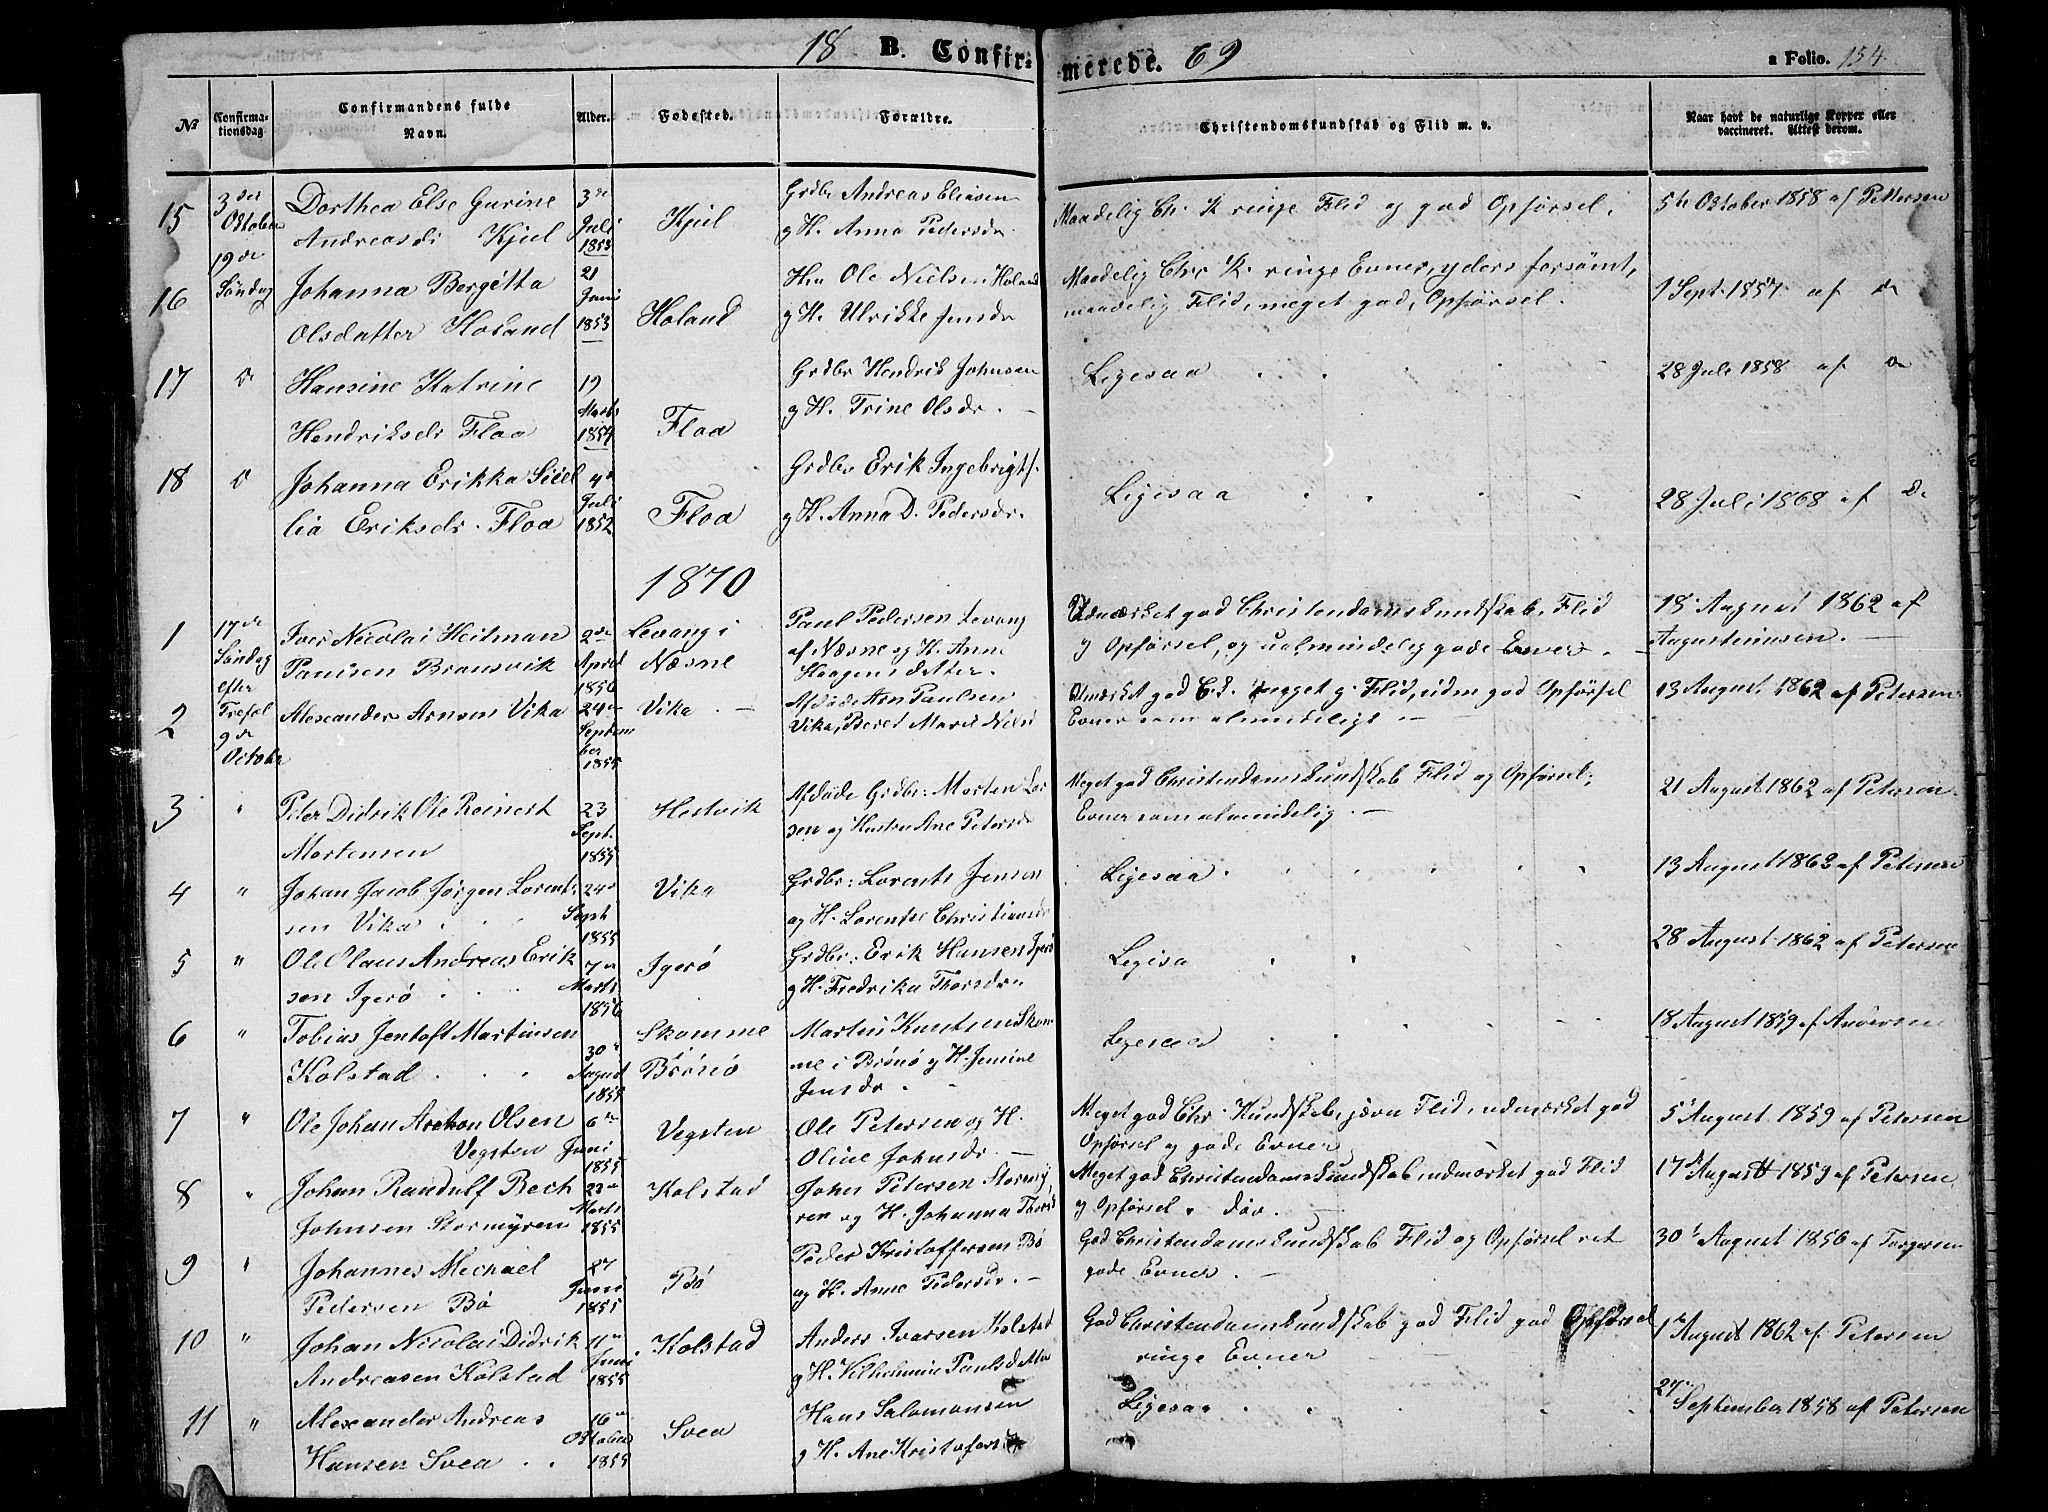 18 B. Confirmerede. 69
a Folio. 154
No
Confirmationsdag.
Confirmandens fulde Navn.
Alder.
Fødested.
Forældre.
Christendomskundskab og Flid m. v.
Naar havt de naturlige Kopper eller vaccineret. Attest derom.
15 3die Oktober 19de Søndag
Dorthea Else Gurine
Andreasdr Kjul
3de Juli 1853
Kjul
Grdbr Andreas Eliasen
g H. Anna Pedersdr
Maadelig Ch. K ringe Flid og god Opførsel.
5te Oktober 1858 af Pettersen
16
Johanna Bergitta
Olsdatter Holand
21 Juni 1853
Holand
Ole Nielsen Holand
g H. Ulrikke Jensdr
Maadelig Chr K. ringe Evner, yders forsømt,
maadelig Flid, meget god, Opførsel.
1 Sept. 1857 af do
17 do
Hansine Katrine
Hendriksdr Floa
19 Marts 1854
Floa
Grdbr Hendrik Johnsen
g H. Trine Olsdr.
Ligesaa
28 Juli 1858 af do
18 do
Johanna Erikka
lia Eriksdr. Floa
4de Juli 1852
Floa
Grdbr Erik Ingebrigts.
g H. Anna D. Pedersdr.
Ligesaa
28 Juli 1868 af do
1870
1 17de Søndag efter Trefol 9de October
Iver Nicolai Heitman
Paulsen Bransvik
2de April 1856
Levang i
Næsne
Paul Pedersen Levang
af Næsne og H. Anne
Haagensdatter.
Udmærket god Christendomskundskab, Flid
g Opførsel, og ualmindelig gode Evner.
18 August 1862 af
Augustinusen.
2
Alexander Arnsen Vika
24de September 1855
Vika.
Afdøde Arn Paulsen
Vika, Beret Marie Niels
Udmærket god C.d. meget g. Flid, uden god Opførsel
Evner som almindeligt
13 August 1862 af Petersen
3 "
Peter Didrik Ole Reinert
Mortensen
23 Sept. 1855
Hestvik
Afdøde Grdbr: Morten Lor
sen og Hustru Ane Petersdr
Meget god Christendomskundskab Flid og Opførsel;
Evner som almindelig.
21 August 1862 af Petersen.
4 "
Johan Jacob Jørgen Lorent
sen Vika
24de Sept 1855
Vika
Grdbr: Lorents Jensen
og H. Lorentse Christiansdr
Ligesaa
13 August 1862 af Petersen
5 "
Ole Claus Andreas Erik
sen Igerø
7de Marts 1856
Igerø
Grdbr: Erik Hansen Igerø
g H. Fredrika Thorsdr
Ligesa
28 August 1862 af Petersen
6 "
Tobias Jentoft Martinsen
Kolstad
30te August
Skomme
Brønø
Martin Knutsen Skom-
me i Brønø g H. Jensine
Jensdr
Ligesaa
18 August 1859 af Andersen
7 "
Ole Johan Arehon Olsen
Vegsten
6te Juni 1855
Vegsten
Ole Petersen og H.
Oline Johnsdr.
Meget god Chr. Kundskab, jævn Flid, udmærket god
Opførsel og gode Evner
5te August 1859 af Petersen
8 "
Johan Randulf Bech
Johnsen Stormyren
23de Marts 1855
Kolstad
John Petersen Stormy
ren og H. Johanna Thorsdr
Meget god Christendomskundskab, udmærket god Flid
g Opførsel
17de August 1859 af Petersen
9 "
Johannes Michael
Pedersen Bø
27 Juni 1855
Bø
Peder Kristoffersen Bø
og H. Anne Pedersdr.
God Christendomskundskab Flid og Opførsel ret
gode Evner.
30te August 1856 af Torgersen
10 "
Johan Nicolai Didrik
Andreasen Kolstad
11te Juni 1855
Kolstad
Anders Ivarsen Kolstad
g H. Vilhelmine Paulsdatter
God Christendomskundskab god Flid god Opførsel
ringe Evner
1ste August 1862 af Petersen
11 "
Alexander Andreas
Hansen Svea
16de Oktober 1855
Svea
Hans Salomonsen
g H. Ane Kristofers
Ligesaa
27de September 1858 af Petersen